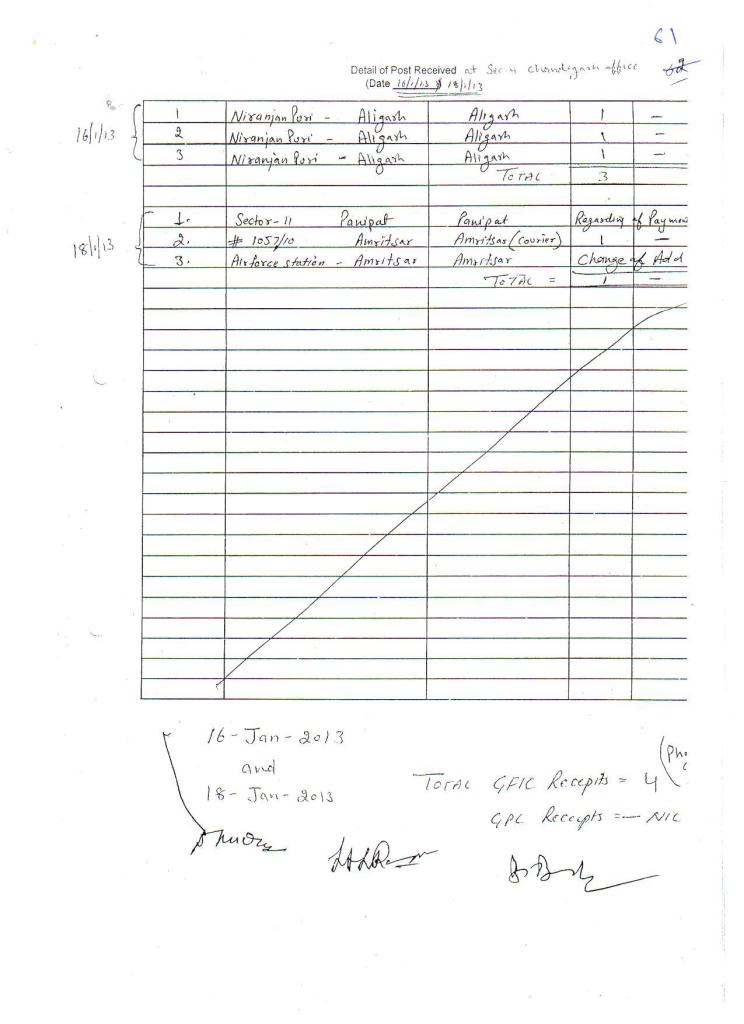 61
Detail of Post Received at Sec-11 Chandigarh office
(Date 16/1/13 & 18/1/13
16/1/13
1 Niranjan Puri - Aligarh Aligarh 1 -
2 Niranjan Puri - Aligarh Aligarh 1 -
3 Niranjan Puri - Aligarh Aligarh 1 -
TOTAL 3
18/1/13
1. Sector-11 Panipat Panipat Regarding of Payme
2. # 1057/10 Amritsar Amritsar (Courier) 1 -
3. Airforce station - Amritsar Amritsar Change of Add
TOTAL = 1 -
16-Jan-2013
and
18-Jan-2013
(Pho
TOTAL GFIC Receipts = 4
GPL Receipts = - NIL